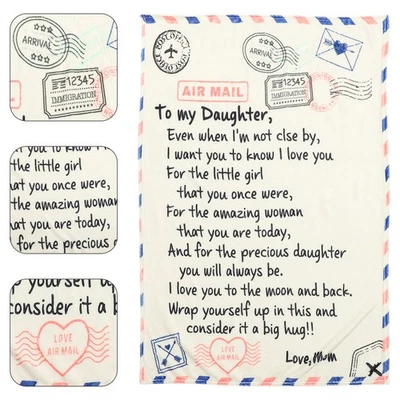 ARRIVAL
12345
IMMIGRATION
at you to know I lo
the little girl
hat you once were,
the amazing woman
hat you are today,
for the precious
p yourself up i
consider it a b
LOVE
AIR MAIL
POST OFFICE
ARRIVAL
12345
IMMIGRATION
AIR MAIL
To my Daughter,
Even when I'm not clse by,
I want you to know I love you
For the little girl
that you once were,
For the amazing woman
that you are today,
And for the precious daughter
you will always be.
I love you to the moon and back.
Wrap yourself up in this and
consider it a big hug!!
Love, Mum
LOVE
AIR MAIL